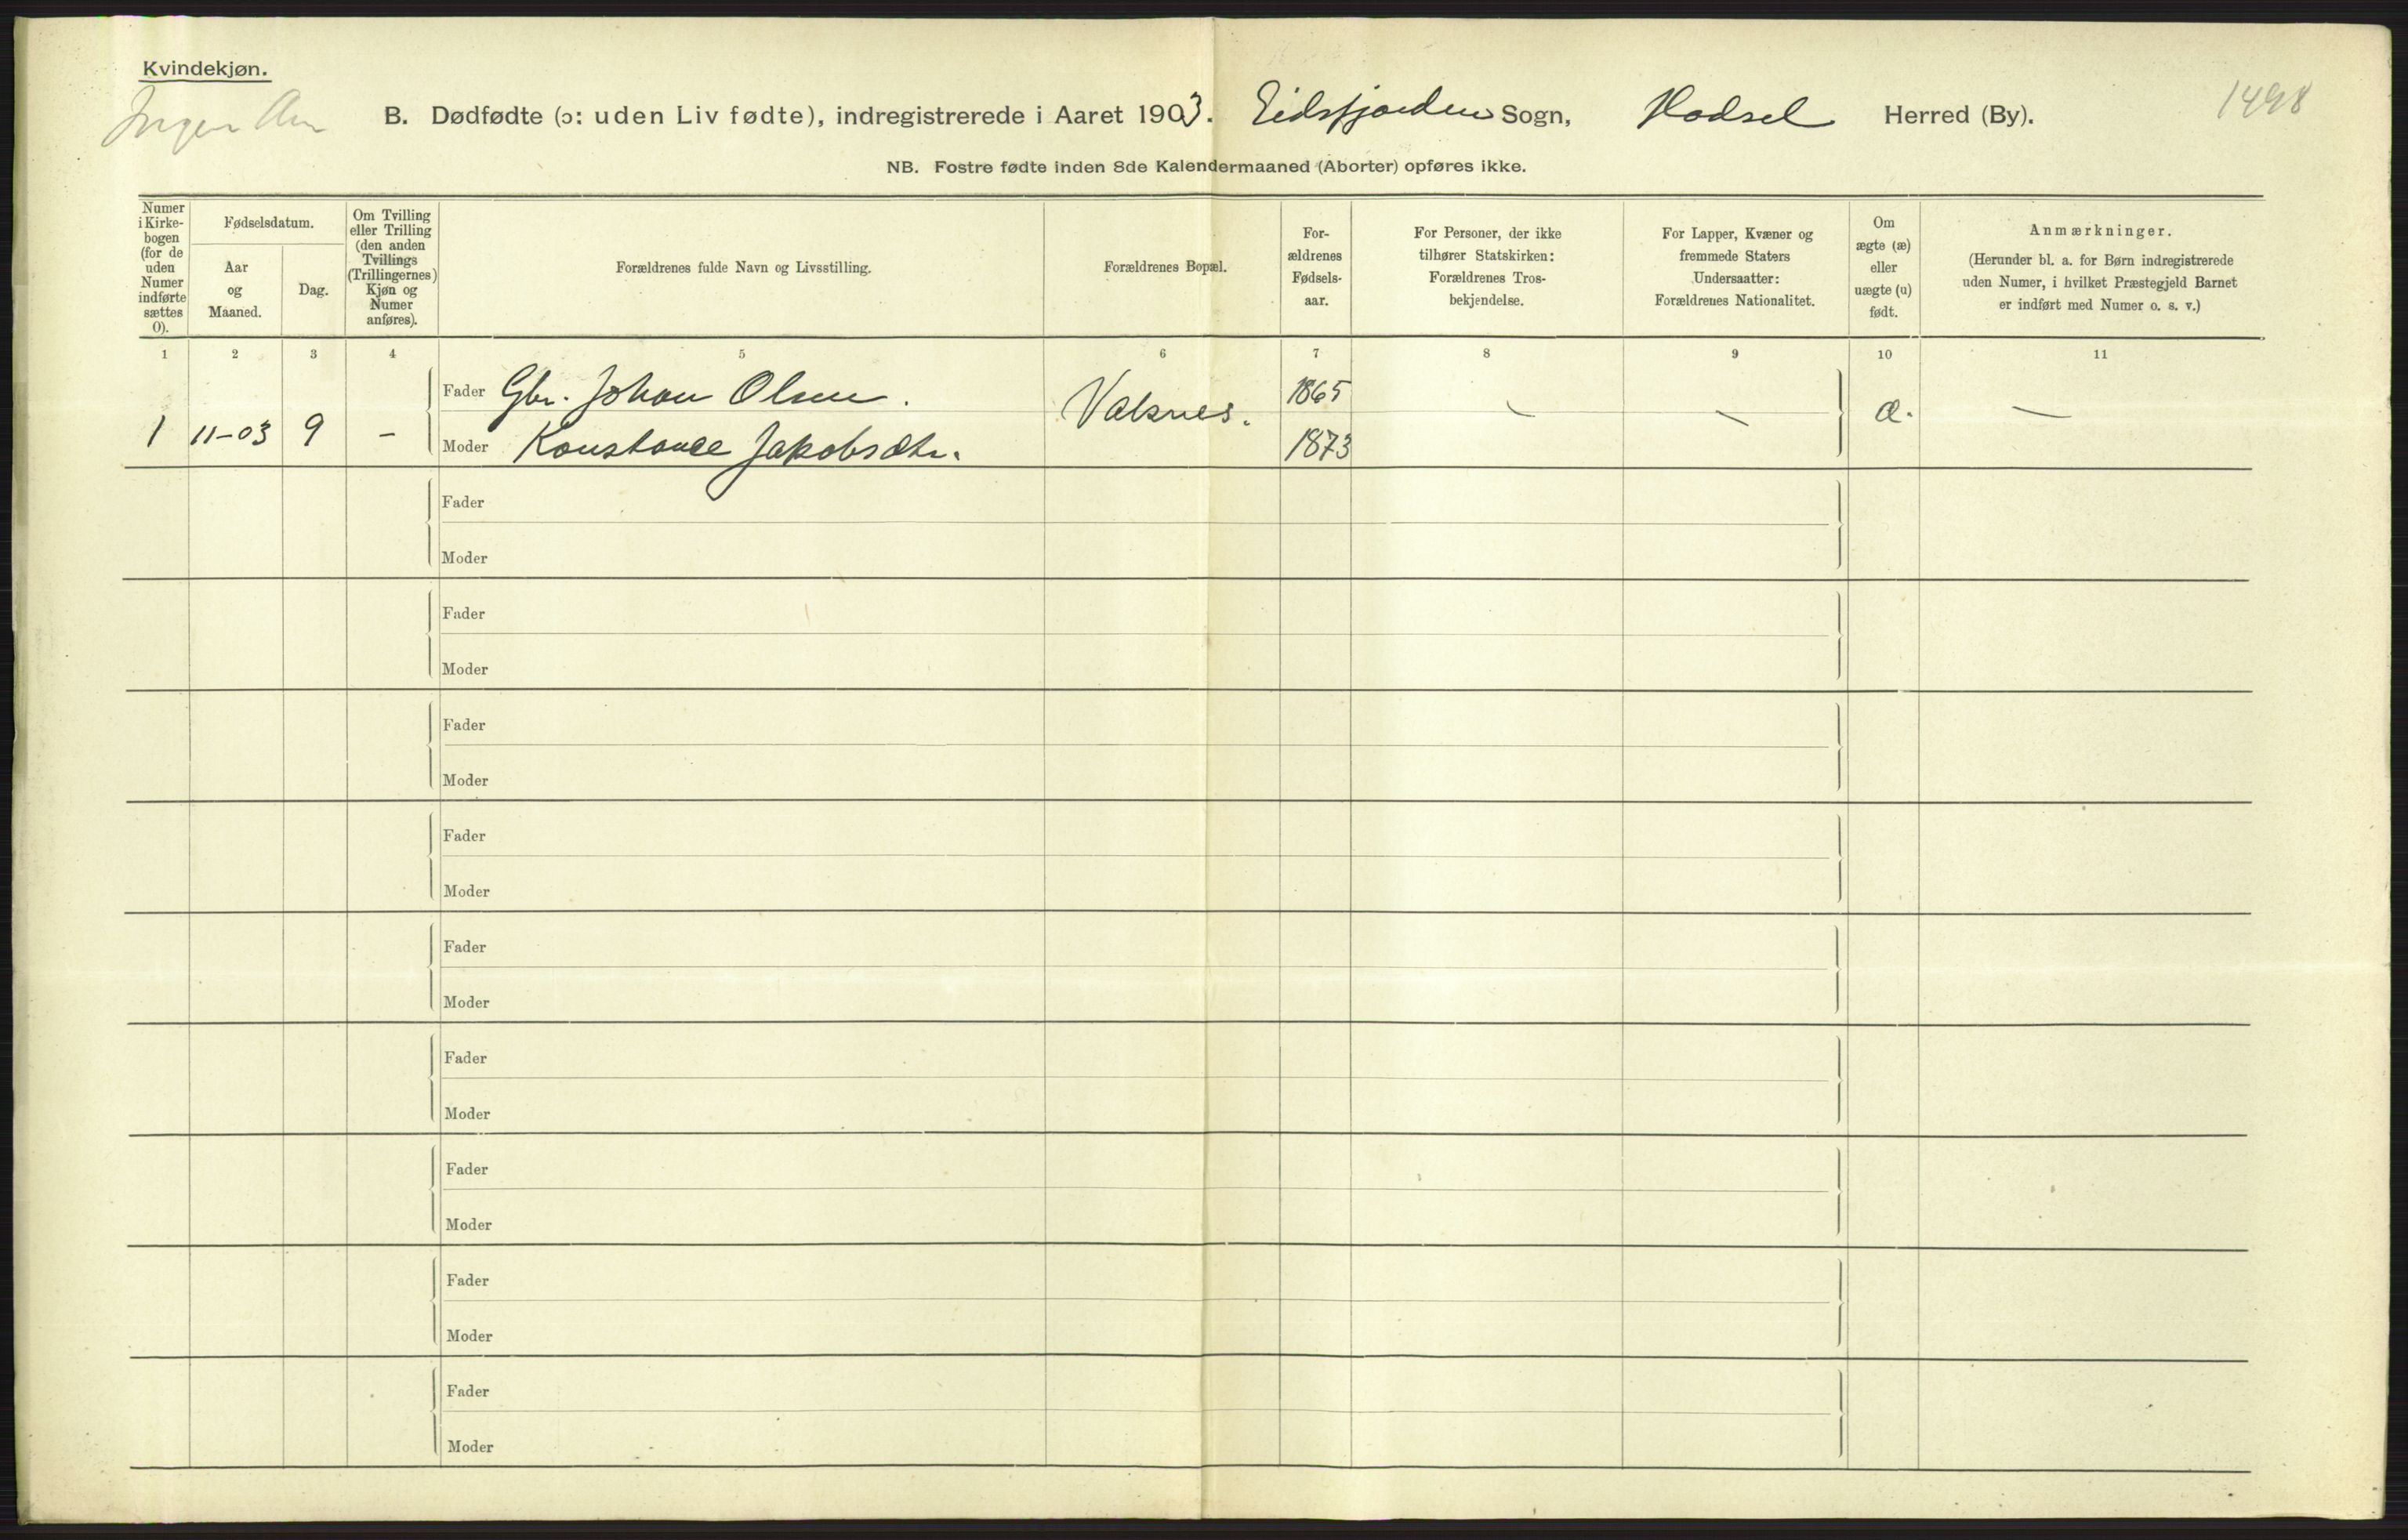 Kvindekjøn.
B. Dødfødte (ɔ: uden Liv fødte), indregistrerede i Aaret 1903. Eidsfjorden Sogn, Hadsel Herred (By).
1498
NB. Fostre fødte inden 8de Kalendermaaned (Aborter) opføres ikke.
Numer i Kirkebogen (for de uden Numer indførte sættes 0).
Fødselsdatum.
Aar og Maaned.
Dag.
Om Tvilling eller Trilling (den anden Tvillings (Trillingernes) Kjøn og Numer anføres).
Forældrenes fulde Navn og Livsstilling.
Forældrenes Bopæl.
For-ældrenes Fødsels-aar.
For Personer, der ikke tilhører Statskirken: Forældrenes Tros-bekjendelse.
For Lapper, Kvæner og fremmede Staters Undersaatter: Forældrenes Nationalitet.
Om ægte (æ) eller uægte (u) født.
Anmærkninger.
(Herunder bl. a. for Børn indregistrerede uden Numer, i hvilket Præstegjeld Barnet er indført med Numer o. s. v.)
1 2 3 4 5 6 7 8 9 10 11
Fader Gbr. Johan Olsen. Valsnes. 1865 – – æ. –
1 11-03 9 – Moder Konstance Jakobsdtr. 1873
Fader
Moder
Fader
Moder
Fader
Moder
Fader
Moder
Fader
Moder
Fader
Moder
Fader
Moder
Fader
Moder
Fader
Moder